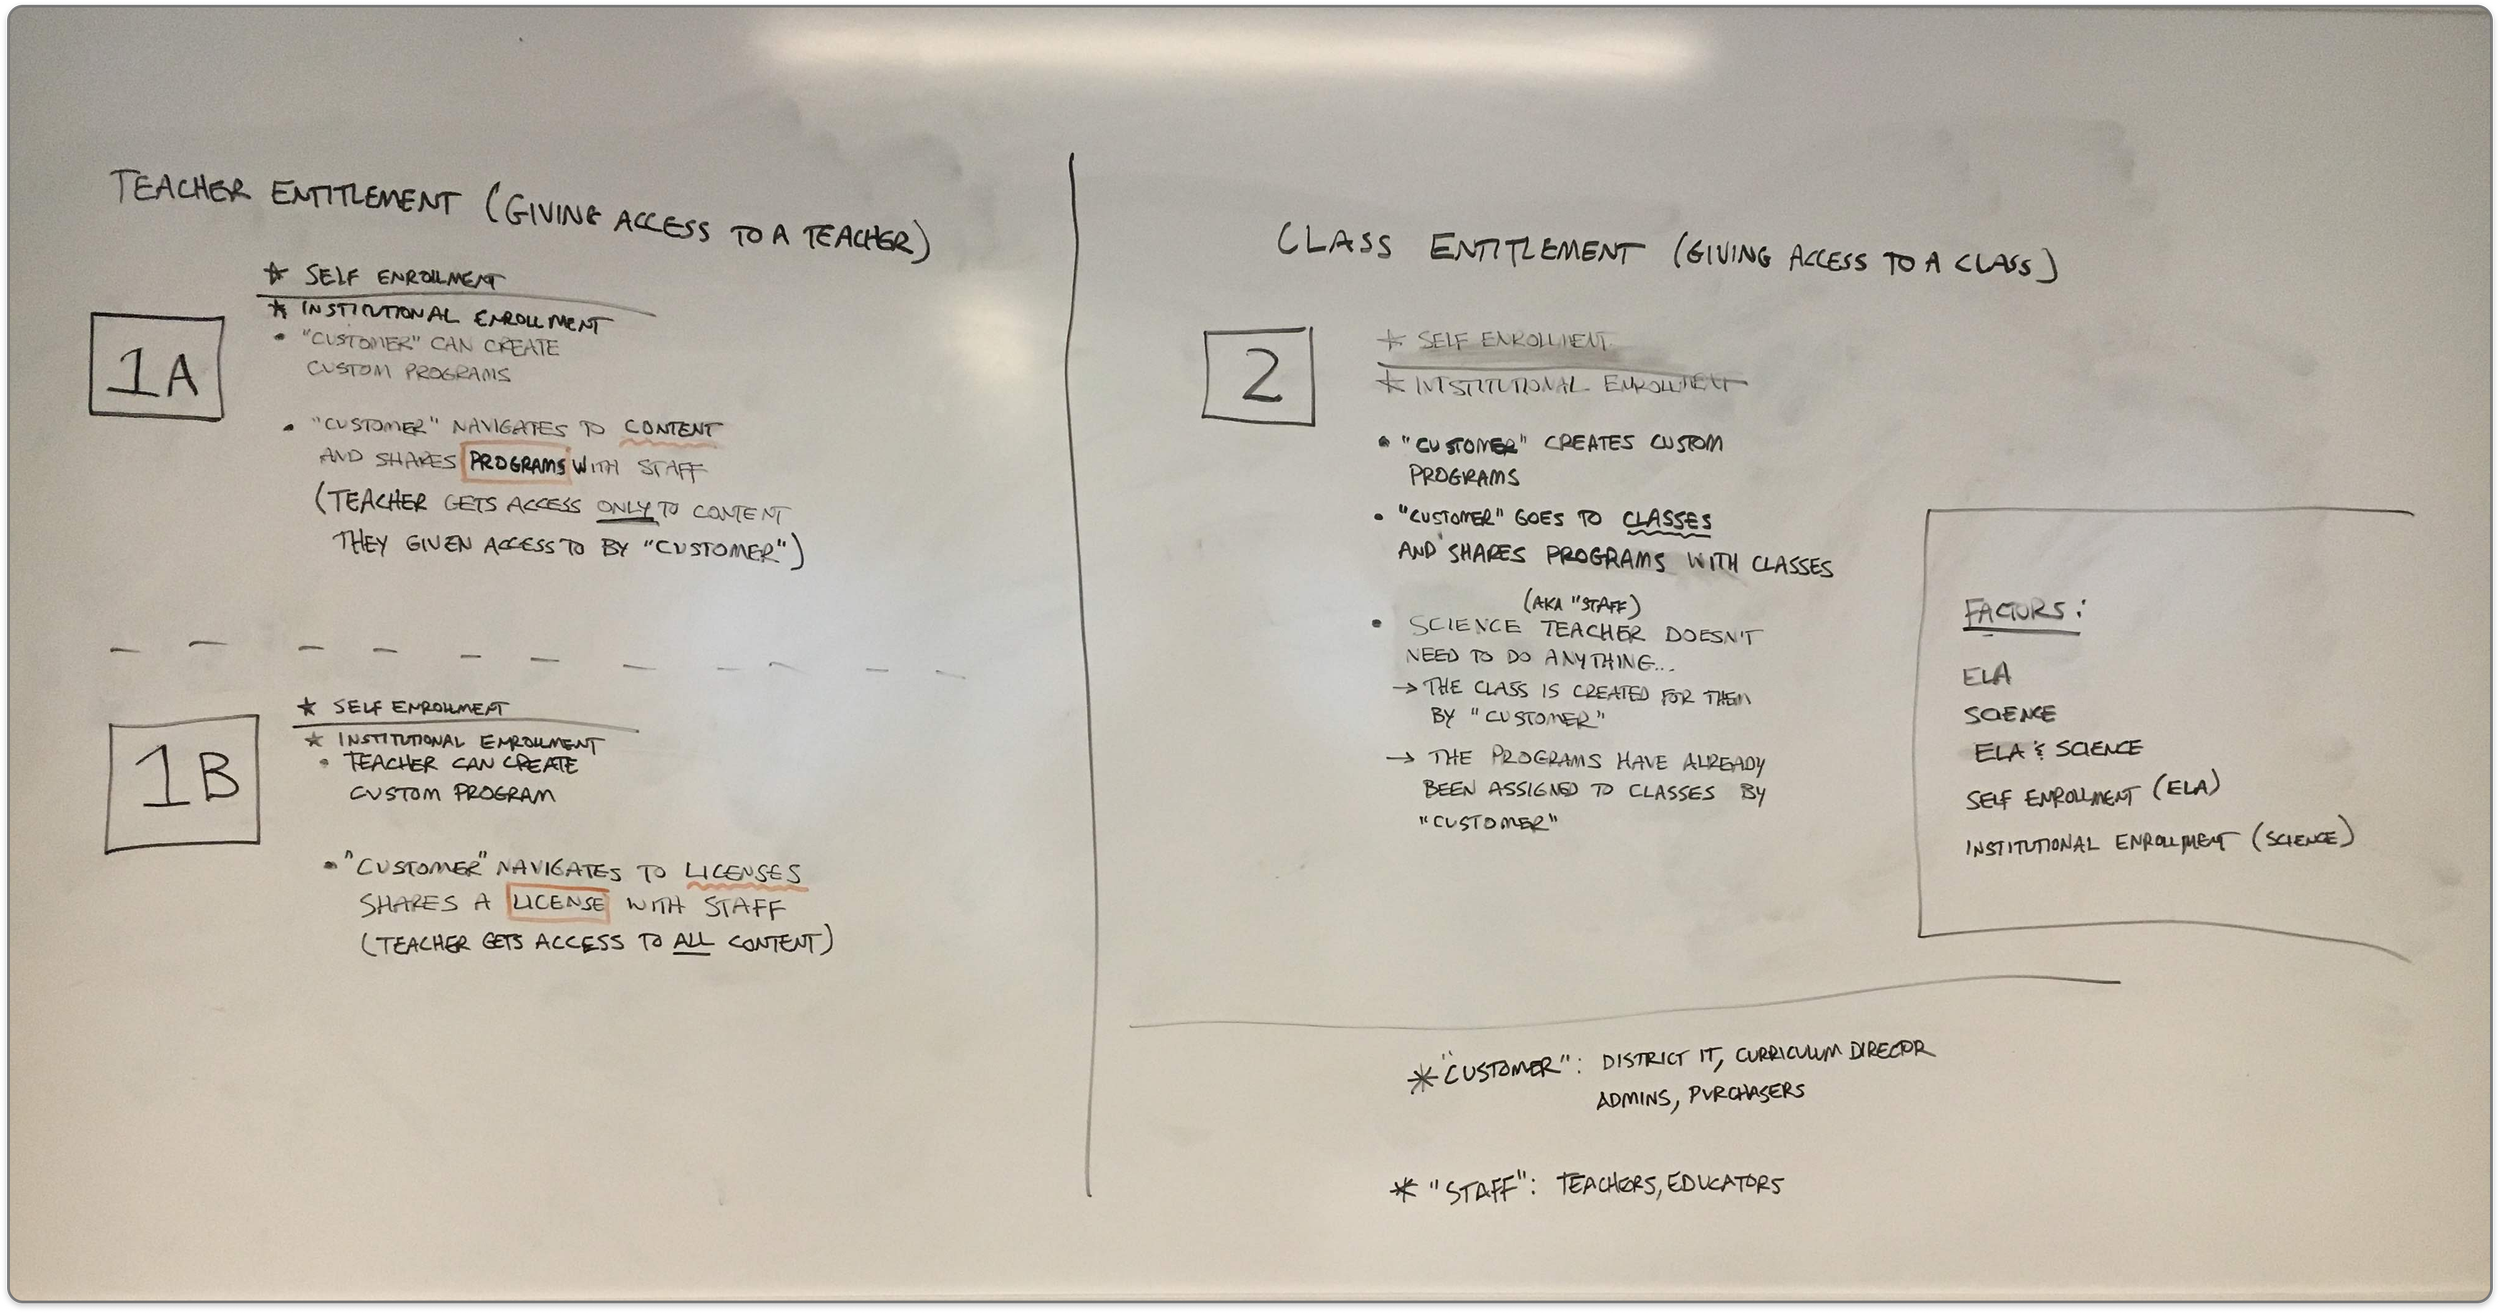 TEACHER ENTITLEMENT (GIVING ACCESS TO A TEACHER)
1A
* SELF ENROLLMENT
* INSTITUTIONAL ENROLLMENT
• "CUSTOMER" CAN CREATE
CUSTOM PROGRAMS
• "CUSTOMER" NAVIGATES TO CONTENT
AND SHARES PROGRAMS WITH STAFF
(TEACHER GETS ACCESS ONLY TO CONTENT
THEY GIVEN ACCESS TO BY "CUSTOMER")
1B
* SELF ENROLLMENT
* INSTITUTIONAL ENROLLMENT
• TEACHER CAN CREATE
CUSTOM PROGRAM
• "CUSTOMER" NAVIGATES TO LICENSES
SHARES A LICENSE WITH STAFF
(TEACHER GETS ACCESS TO ALL CONTENT)
CLASS ENTITLEMENT (GIVING ACCESS TO A CLASS)
2
* SELF ENROLLMENT
* INTSTITUTIONAL ENROLLMENT
• "CUSTOMER" CREATES CUSTOM
PROGRAMS
• "CUSTOMER" GOES TO CLASSES
AND SHARES PROGRAMS WITH CLASSES
(AKA "STAFF)
• SCIENCE TEACHER DOESN'T
NEED TO DO ANYTHING...
→ THE CLASS IS CREATED FOR THEM
BY "CUSTOMER"
→ THE PROGRAMS HAVE ALREADY
BEEN ASSIGNED TO CLASSES BY
"CUSTOMER"
FACTORS:
ELA
SCIENCE
ELA & SCIENCE
SELF ENROLLMENT (ELA)
INSTITUTIONAL ENROLLMENT (SCIENCE)
* "CUSTOMER": DISTRICT IT, CURRICULUM DIRECTOR
ADMINS, PURCHASERS
* "STAFF": TEACHERS, EDUCATORS